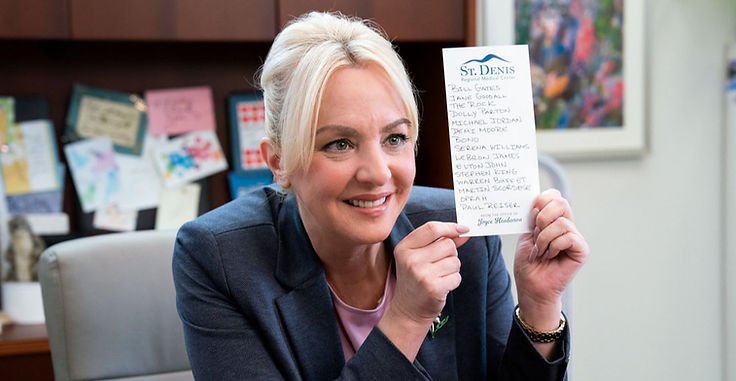 ST. DENIS
Regional Medical Center
BILL GATES
JANE GOODALL
THE ROCK
DOLLY PARTON
MICHAEL JORDAN
DEMI MOORE
BONO
SERENA WILLIAMS
LEBRON JAMES
ELTON JOHN
STEPHEN KING
WARREN BUFFET
MARTIN SCORSESE
OPRAH
PAUL REISER
FROM THE OFFICE OF
Joyce Henderson